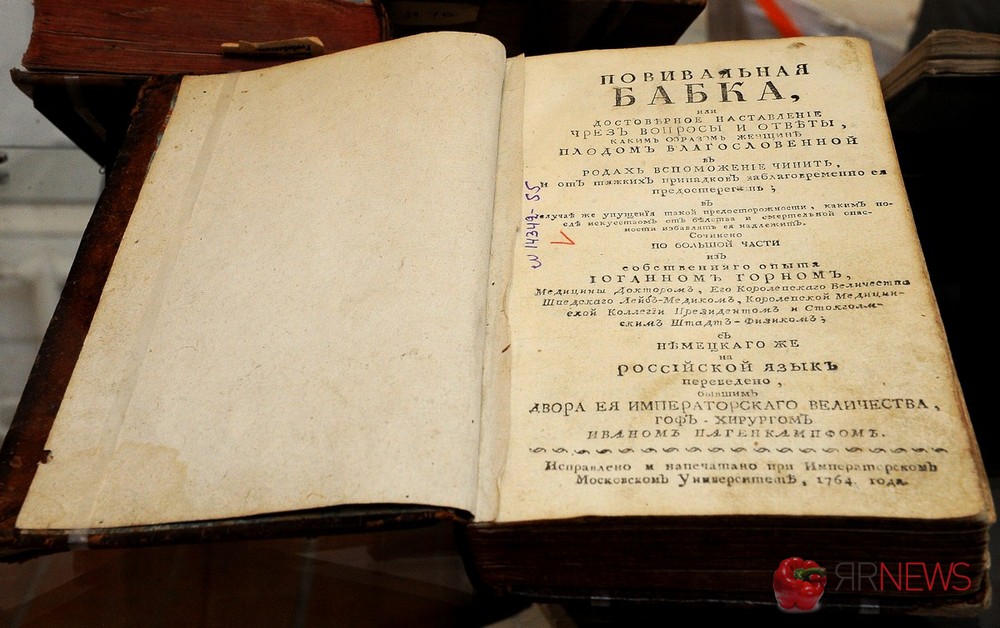 ПОВИВАЛЬНАЯ
БАБКА,
или
ДОСТОВѢРНОЕ НАСТАВЛЕНІЕ
ЧРЕЗЪ ВОПРОСЫ И ОТВѢТЫ,
КАКИМЪ ОБРАЗОМЪ ЖЕНЩИНѢ
ПЛОДОМЪ БЛАГОСЛОВЕННОЙ
въ
РОДАХЪ ВСПОМОЖЕНІЕ ЧИНИТЬ,
и отъ тяжкихъ припадковъ заблаговременно ея
предостерегать;
въ
случаѣ же упущенія такой предосторожности, какимъ по-
слѣ искусствомъ отъ бѣдства и смертельной опас-
ности избавлять ея надлежитъ.
Сочинено
ПО БОЛЬШОЙ ЧАСТИ
изъ
собственнаго опыта
ІОГАННОМЪ ГОРНОМЪ,
Медицины Докторомъ, Его Королевскаго Величества
Шведскаго Лейбъ-Медикомъ, Королевской Медицин-
ской Коллегіи Президентомъ и Стокголм-
скимъ Штадтъ-Физикомъ;
съ
НѢМЕЦКАГО ЖЕ
на
РОССІЙСКОЙ ЯЗЫКЪ
переведено,
бывшимъ
ДВОРА ЕЯ ИМПЕРАТОРСКАГО ВЕЛИЧЕСТВА,
ГОФЪ-ХИРУРГОМЪ
ИВАНОМЪ ПАГЕНКАМПФОМЪ.
Исправлено и напечатано при Императорскомъ
Московскомъ Университетѣ, 1764. года.
14349-55
ЯRNEWS